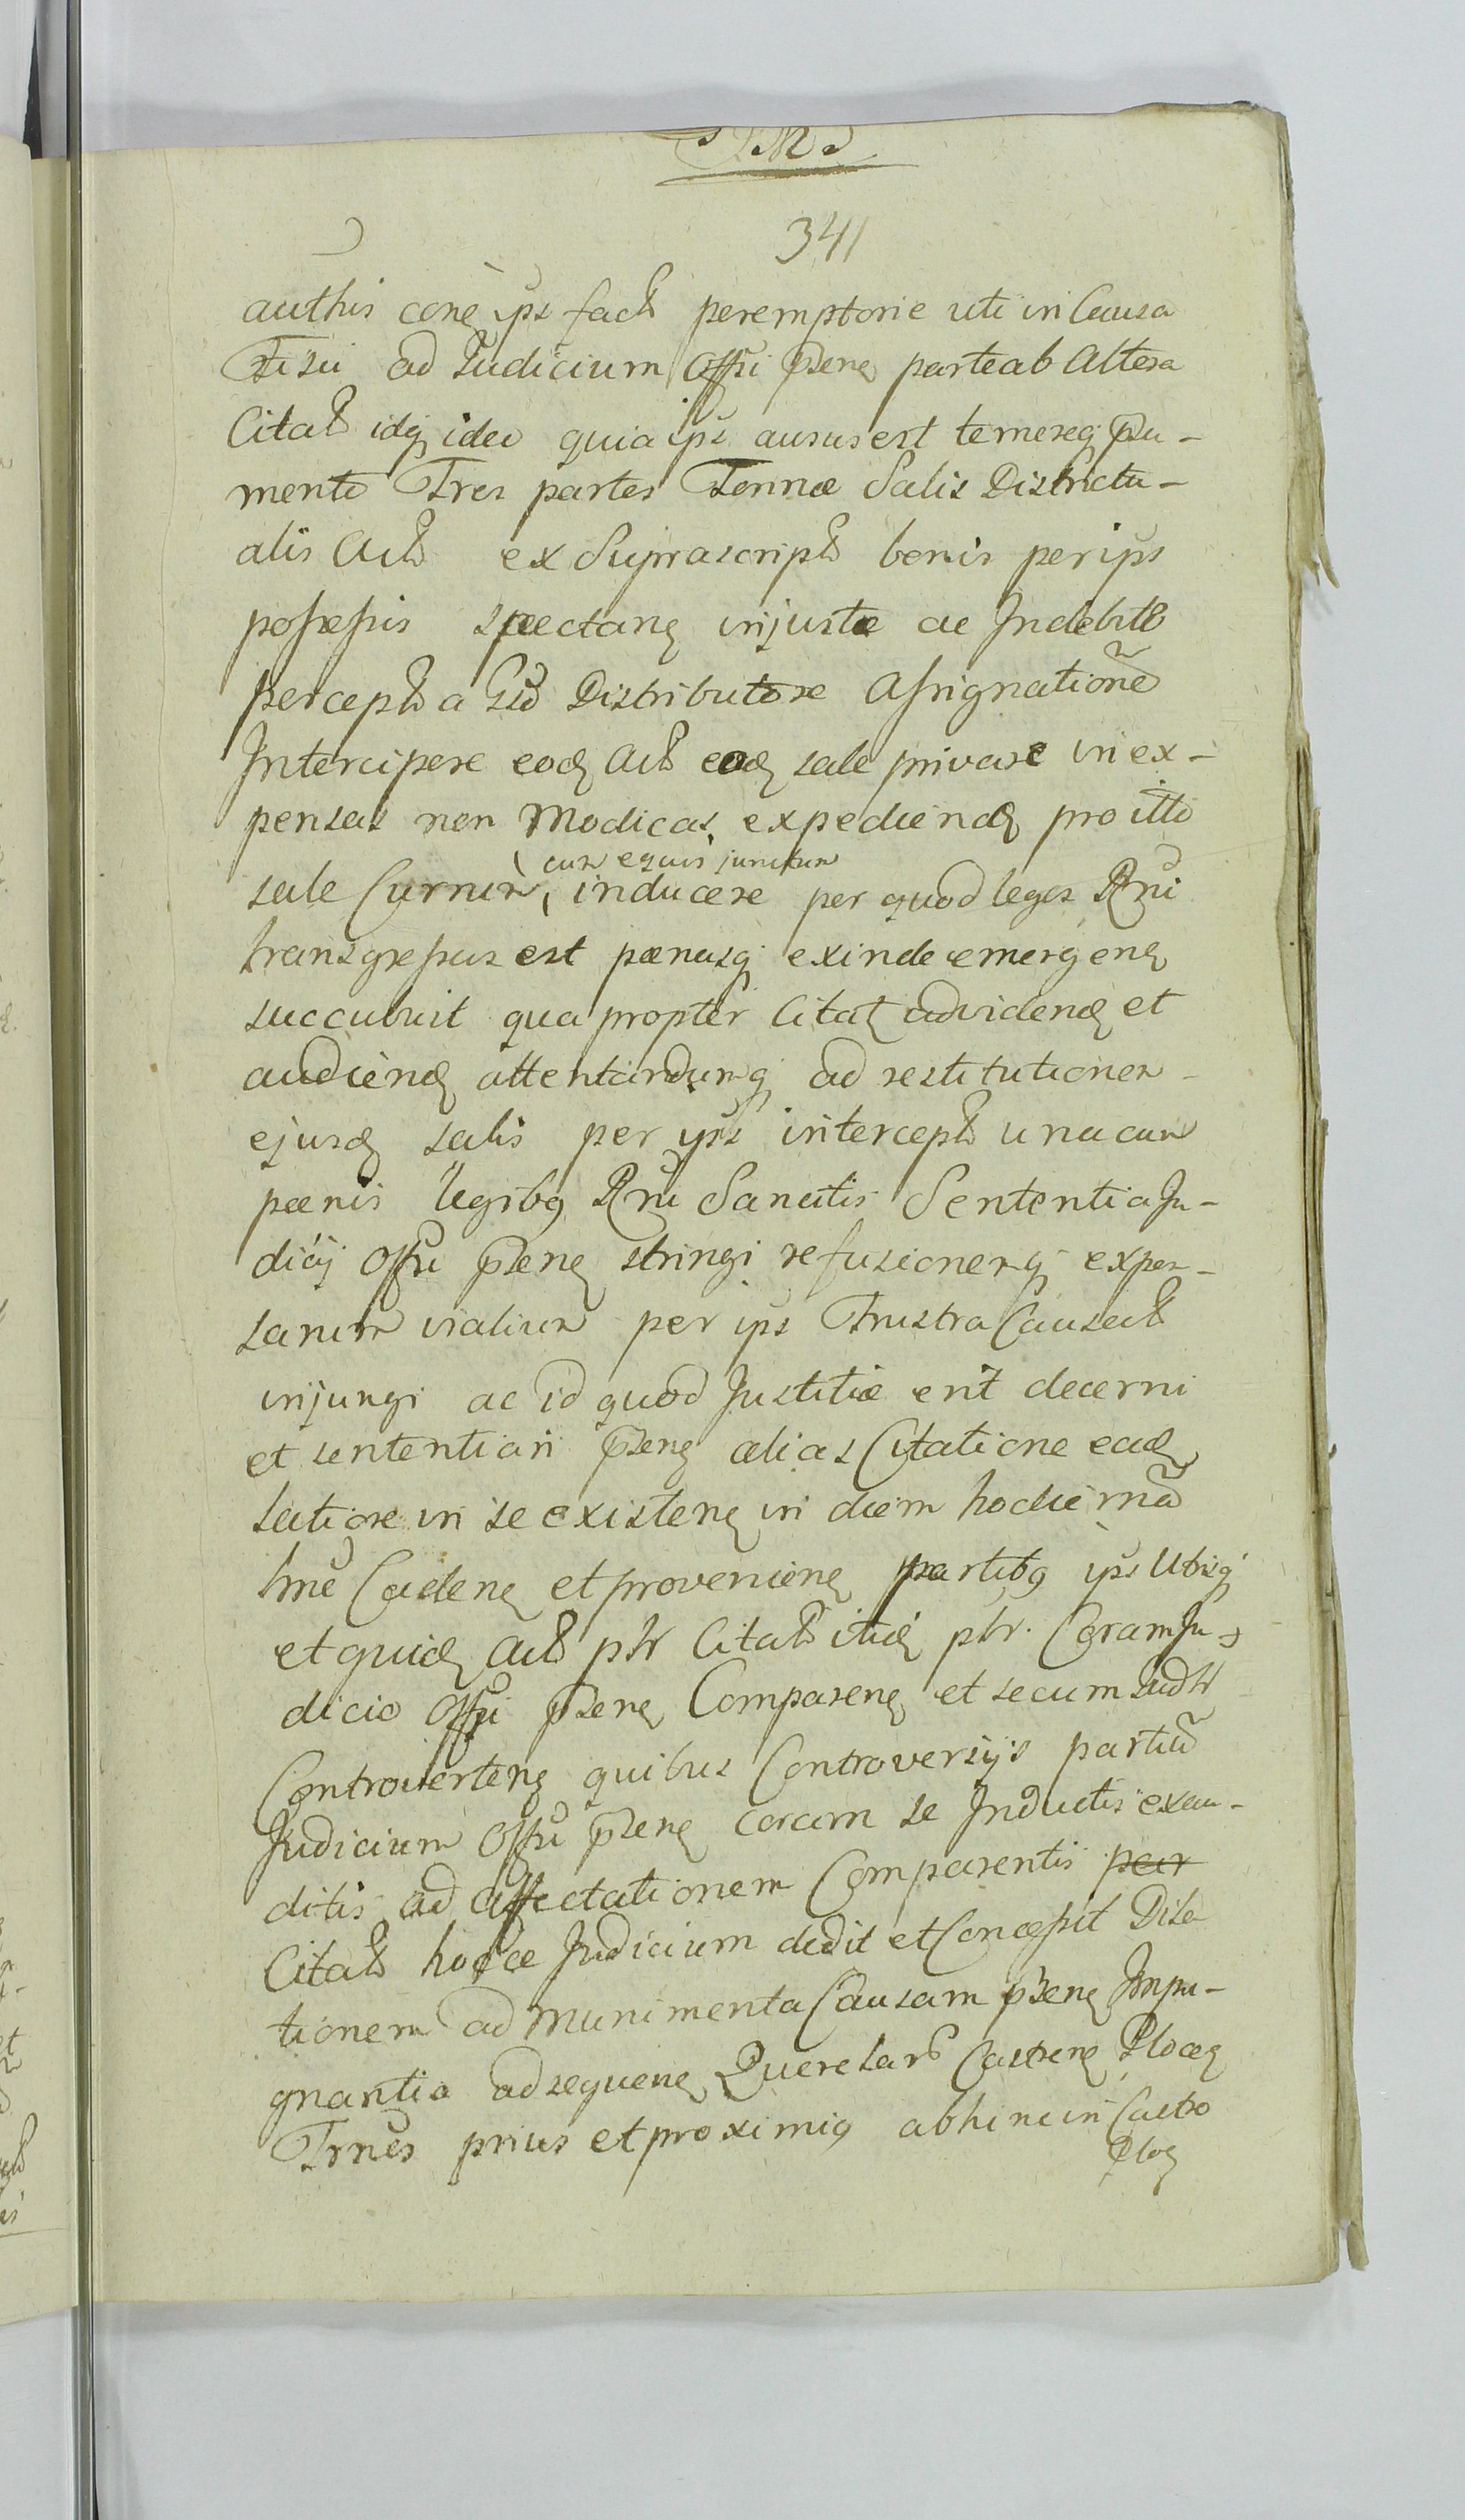 341
authis cone ips fact peremptorie uti in Causa
Fisci ad Judicium Offi psens parte ab Altera
Citat idq ideo quia ips ausus est temereq psu-
mento Tres partes Tonnæ Salis Districtu-
alis Act ex Suprascript bonis per ips
possessis spectans injuste ac Indebite
percept a Distributore Assignatione
Intercipere eod Act eod sale privare in ex-
pensas non Modicas expediend pro illo
cum equis junctum
sale Currum inducere per quod leges Rni
transgressus est pœnasq exinde emergens
succubuit qua propter Citat ad videnq et
audiend attentandumq ad restitutionem
ejusd salis per ips intercept una cum
pœnis legibq Rni Sancitis Sententia Ju-
dicij Offi psens stringi refusionemq expen-
sarum vialium per ips Frustra Causat
injungi ac id quod Justitiæ erit decerni
et sententiari psens alias Citatione ead
latiore in se existens in diem hodierna
hne Cadens et proveniens partibq ips Utrisq
et quid Act pltr Citat itid pltr. Coram Ju-
dicio Offi psens Comparens et secum Judlr
Controvertens quibus Controversijs partiu
Judicium Offi psens coram se Inductis exau-
ditis ad affectationem Comparentis per
Citat hocce Judicium dedit et Concessit Dila
tionem ad Munimenta Causam psens Impu-
gnantia ad sequens Querelar Castrens Plocen
Trnos prius et proximiq abhinc in Castro
Ploc